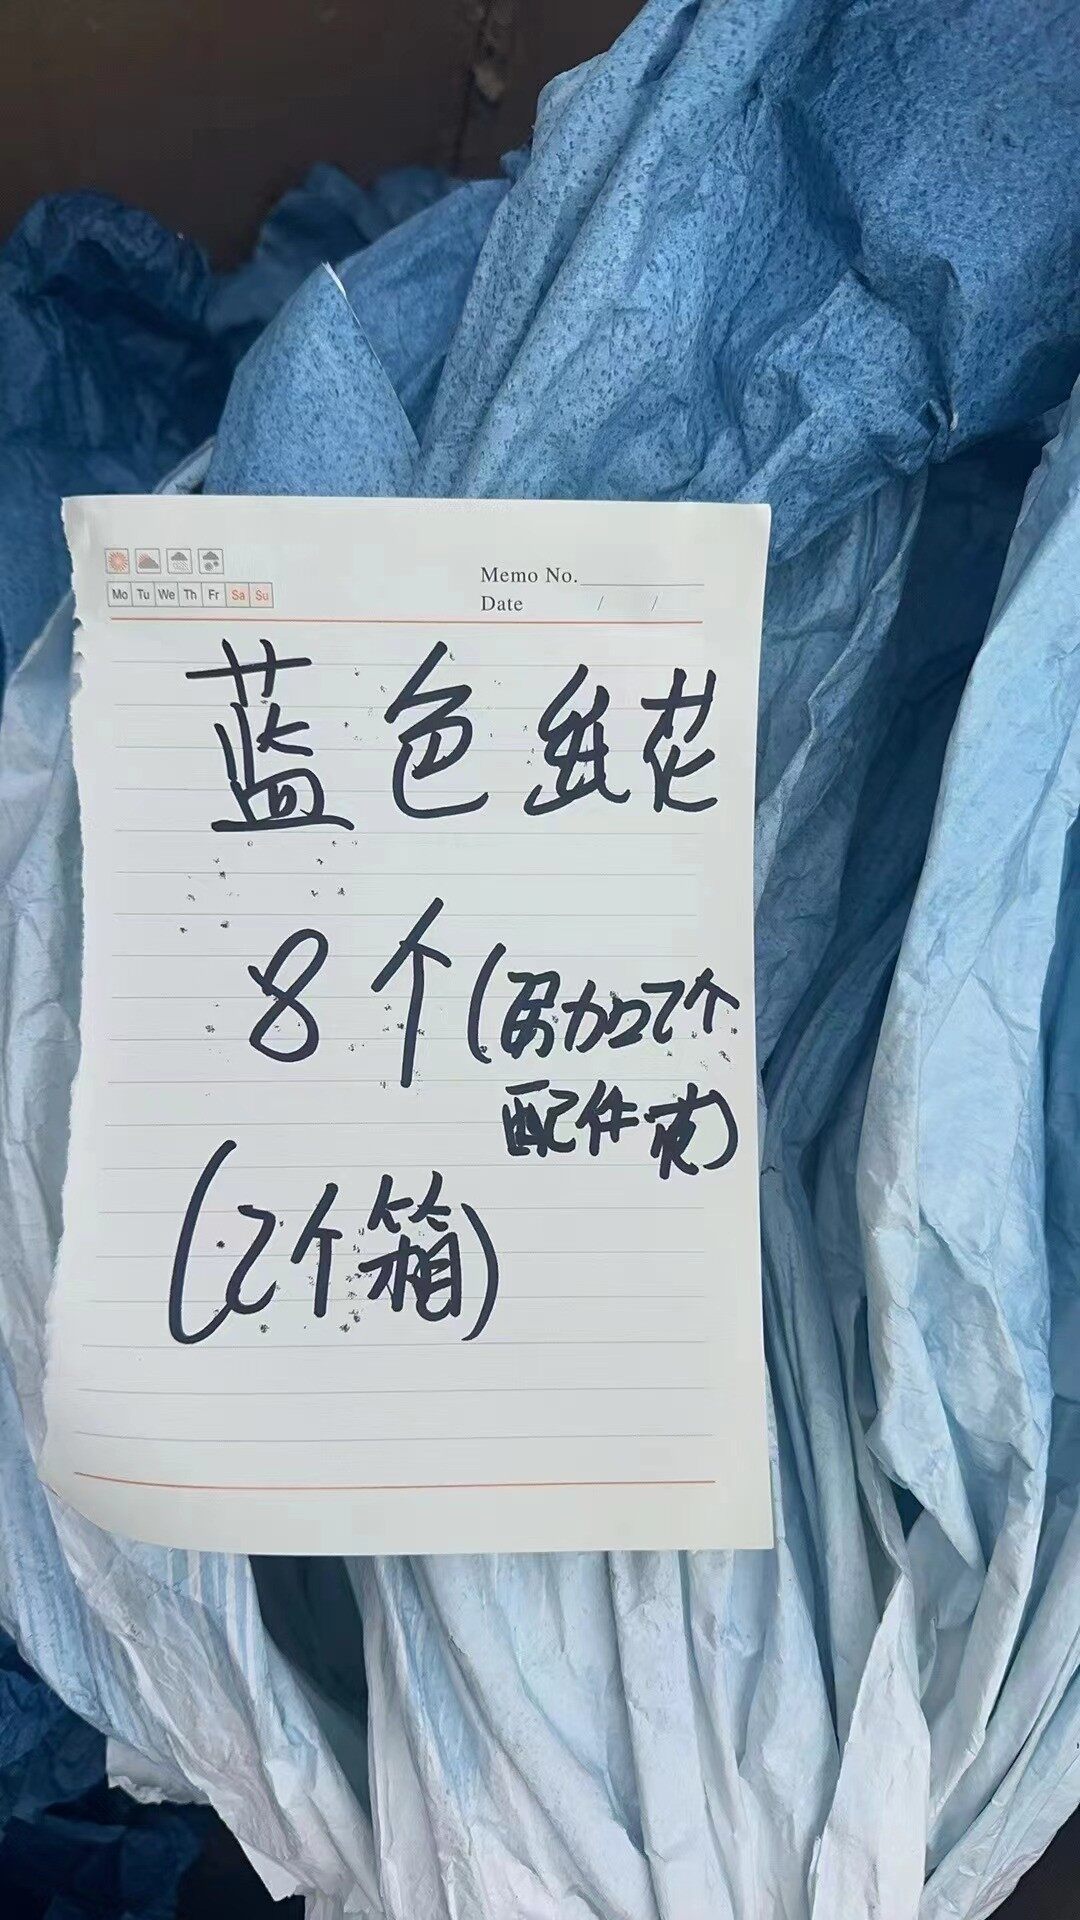 Memo No.
Mo Tu We Th Fr Sa Su
Date / /
蓝色纸花
8个(另加2个
配件花)
(2个箱)